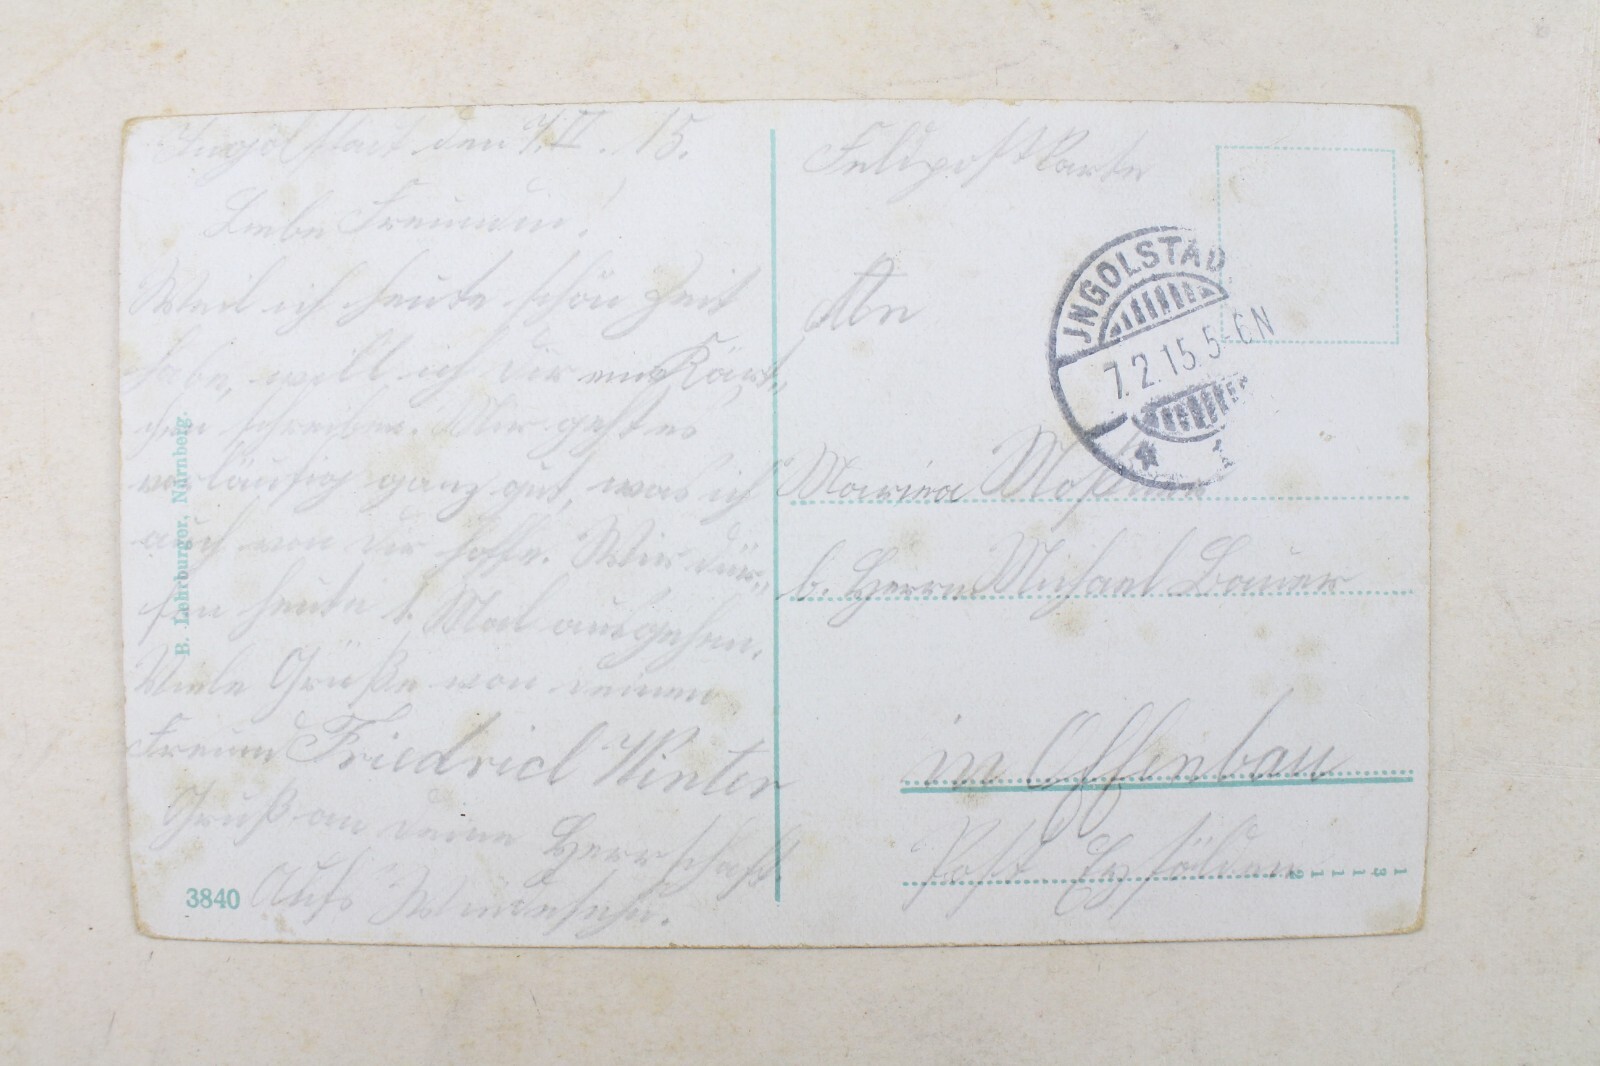 Ingolstadt den 7.II.15.
Liebe Freundin!
Weil ich heute schön Zeit
habe, will ich dir ein Kärt-
chen schreiben. Mir geht es
vorläufig ganz gut, was ich
auch von dir hoffe. Wir dür-
fen heute 1. Mal ausgehen.
Viele Grüße von deinem
Freund Friedrich Winter
Gruß an deine Herrschaft.
Aufs Wiedersehn.
B. Lehrburger, Nürnberg.
3840
Feldpostkarte
An
JNGOLSTAD
7.2.15.5-6N
1
b. Herrn Michael Bauer
in Offenbau
Post